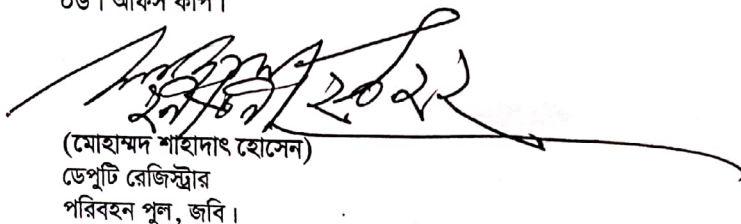 ০৬। অফিস কপি।
(মোহাম্মদ শাহাদাৎ হোসেন)
ডেপুটি রেজিস্ট্রার
পরিবহন পুল, জবি।